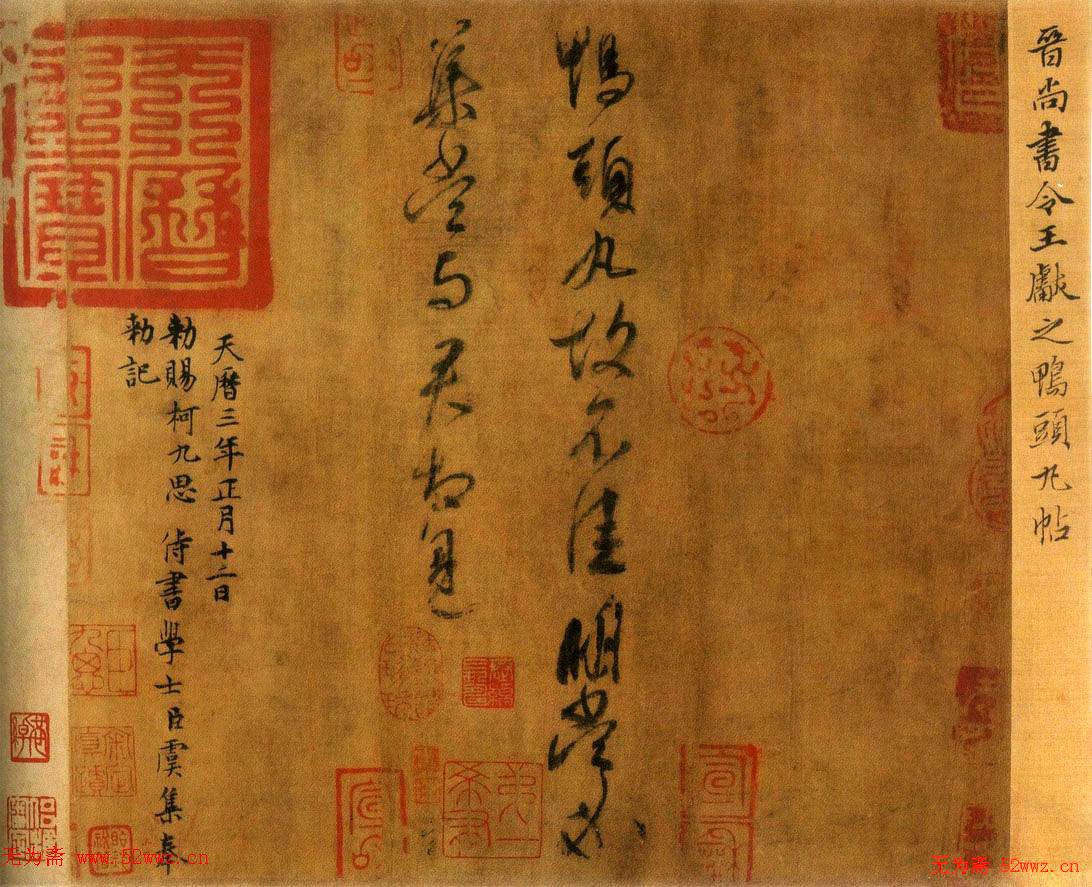 晋尚書令王獻之鴨頭丸帖
鴨頭丸故不佳明當必
集當与君相見
天曆三年正月十二日
勅賜柯九思侍書學士臣虞集奉
勅記
天曆之寳
无为斋 www.52wwz.cn
无为斋:52wwz.cn